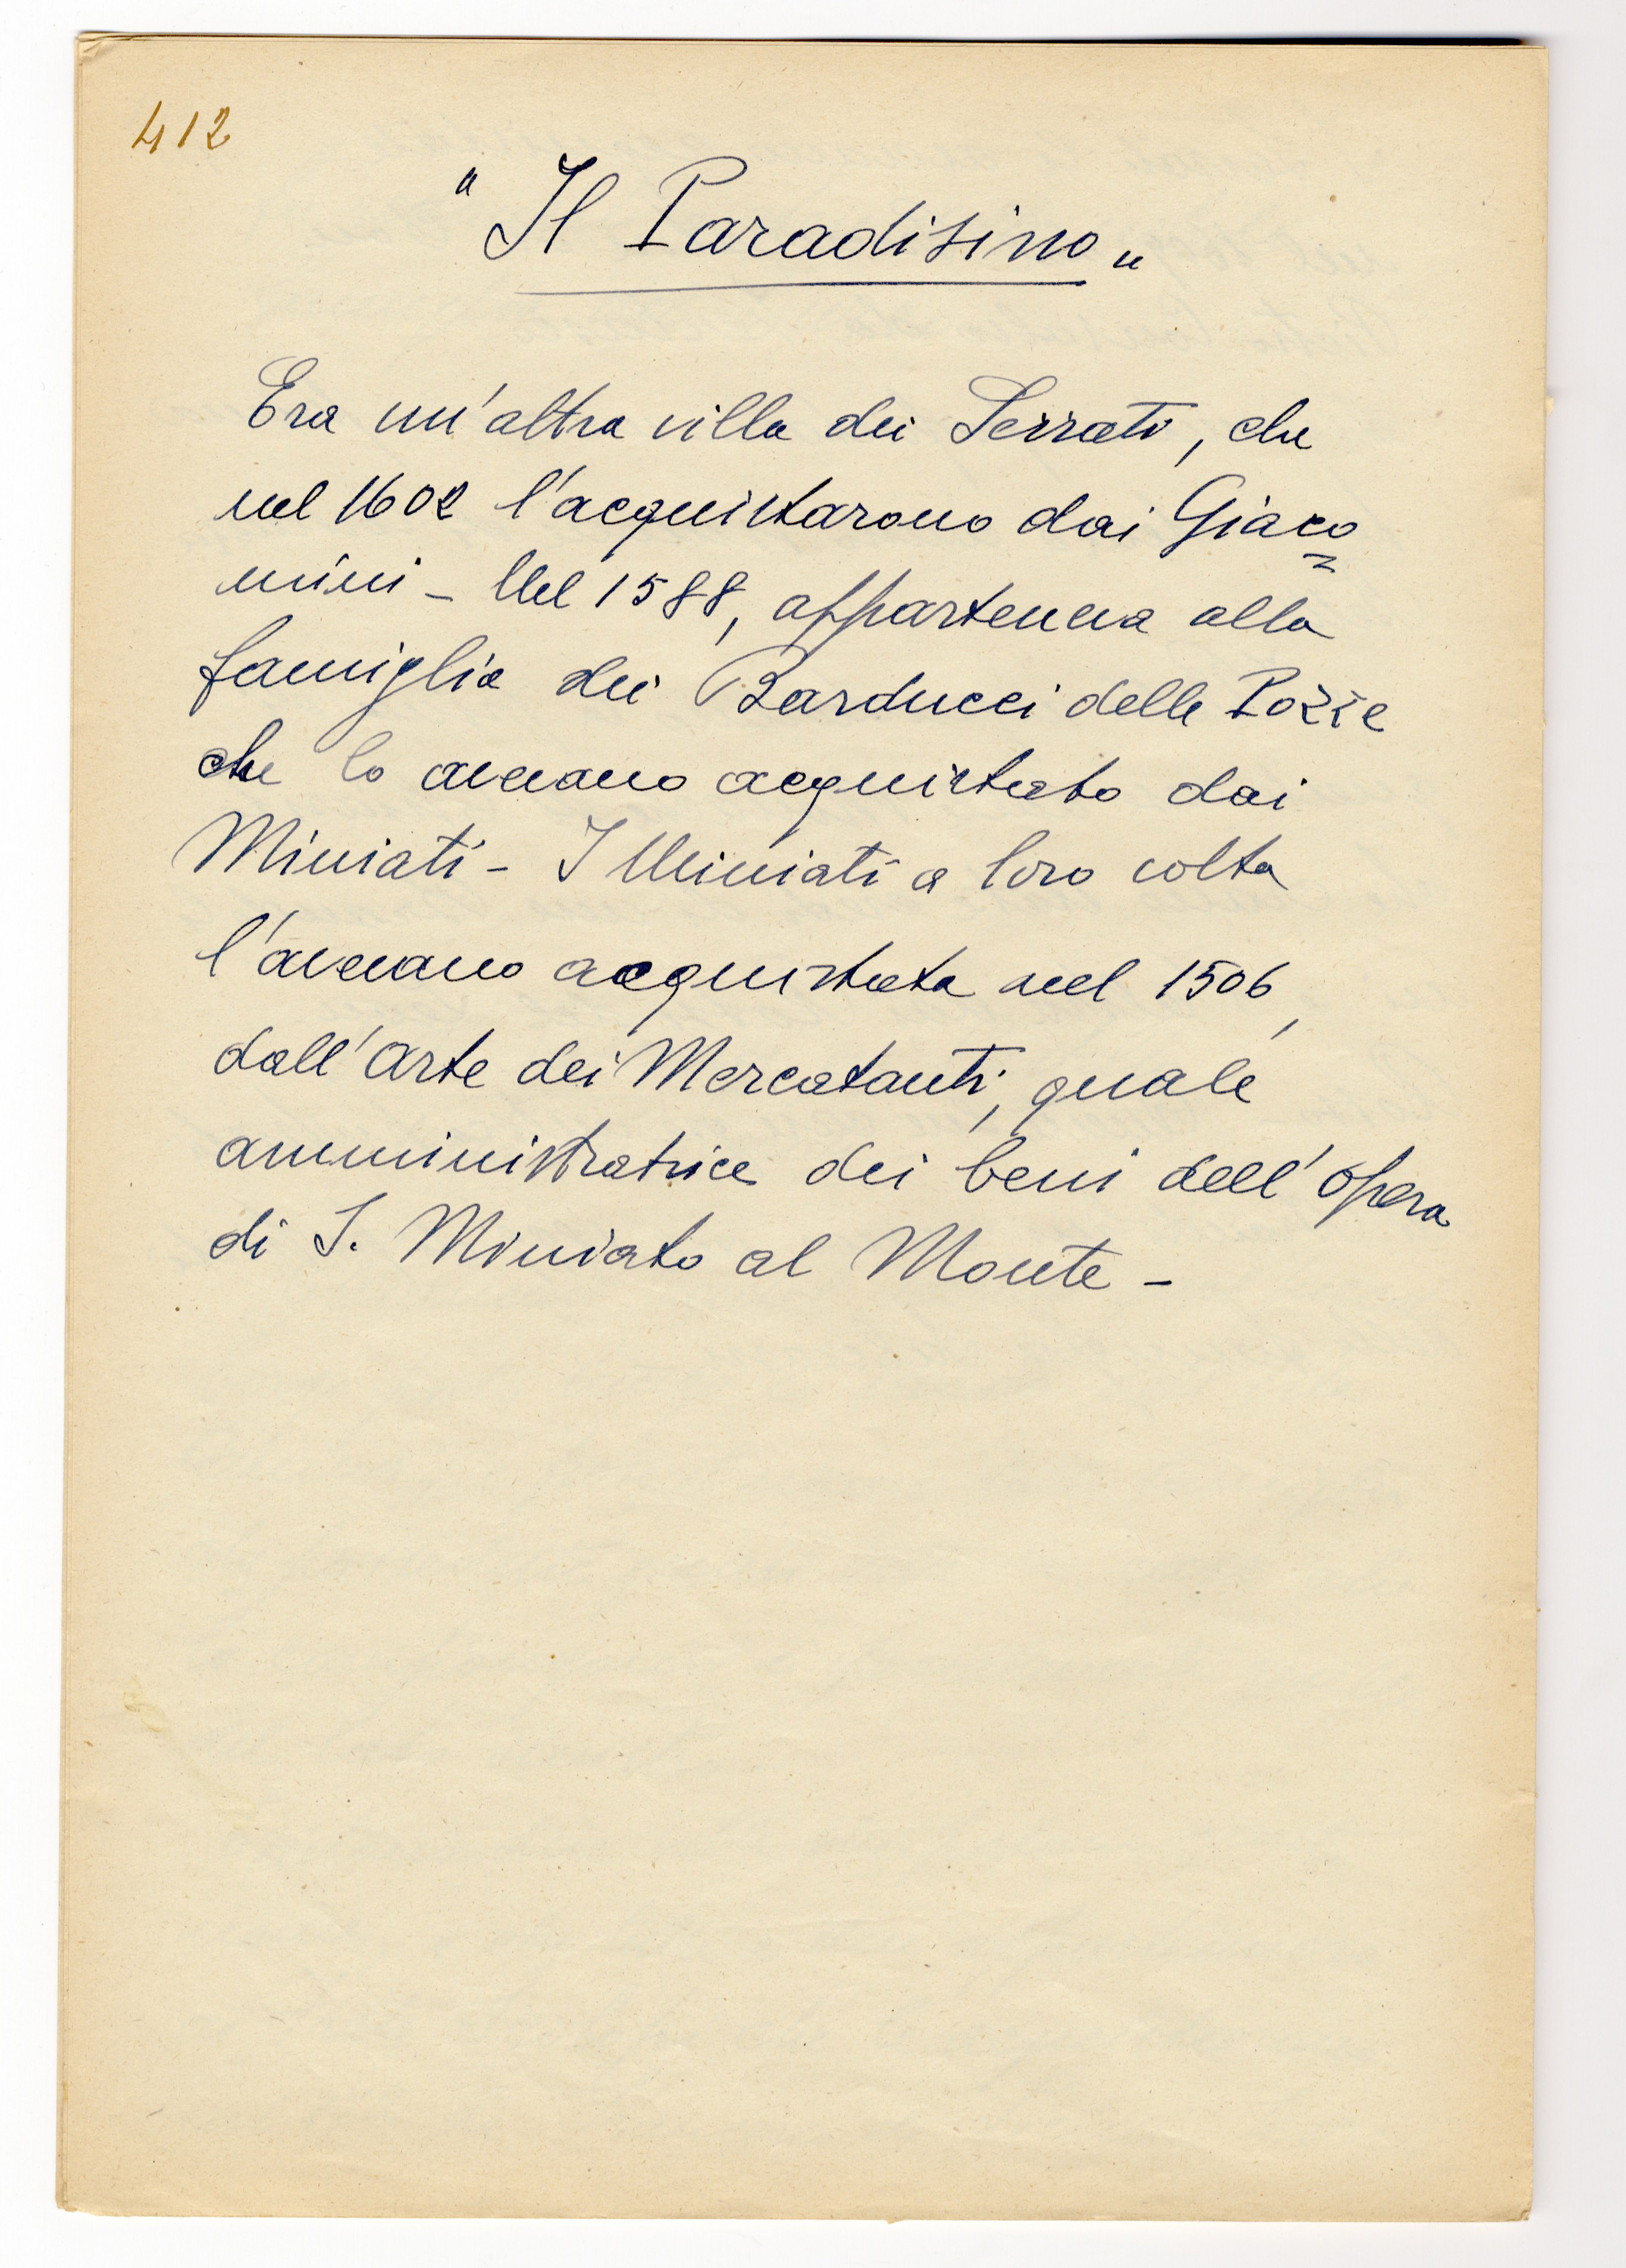 412
"Il Paradisino"
Era un'altra villa dei Serrati, che
nel 1602 l'acquistarono dai Giaco=
mini - Nel 1588, apparteneva alla
famiglia dei Barducci delle Pozze
che lo avevano acquistato dai
Miniati - I Miniati a loro volta
l'avevano acquistata nel 1506,
dall'Arte dei Mercatanti, quale
amministratrice dei beni dell'opera
di S. Miniato al Monte -